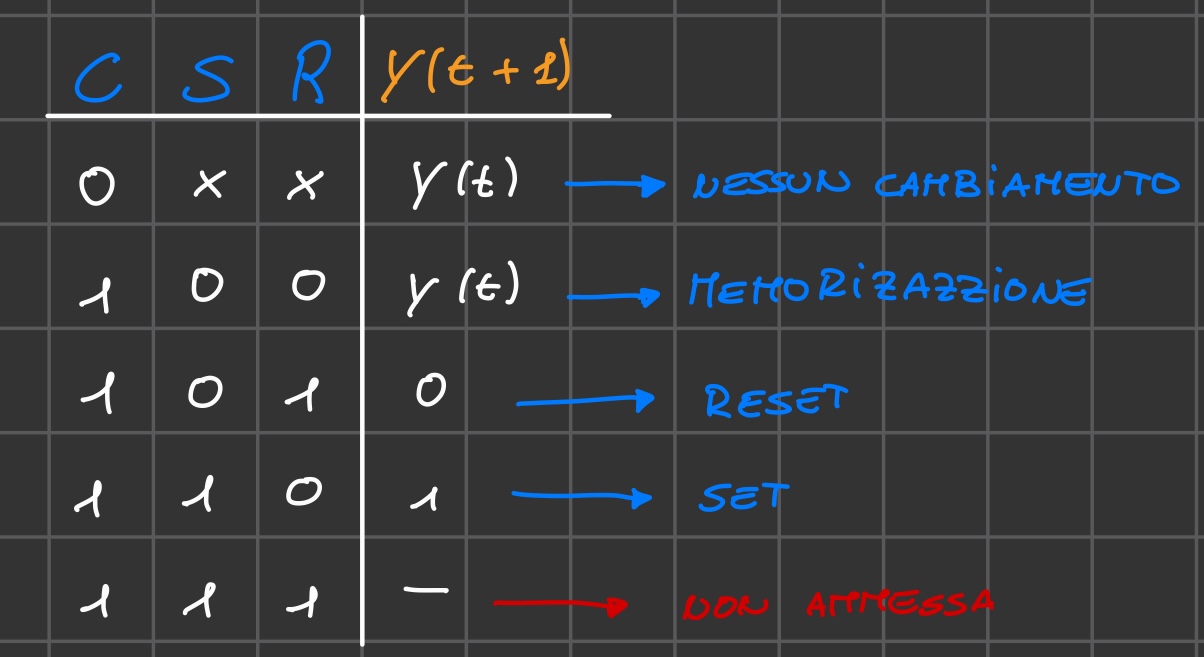 C S R Y(t+1)
0 x x Y(t) → NESSUN CAMBIAMENTO
1 0 0 Y(t) → MEMORIZAZZIONE
1 0 1 0 → RESET
1 1 0 1 → SET
1 1 1 — → NON AMMESSA